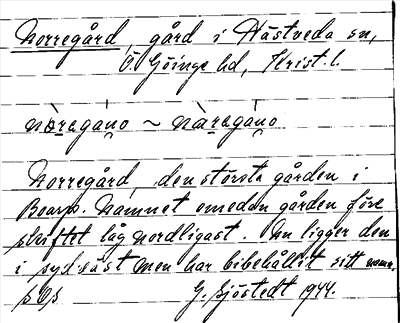 Norregård gård i Hästveda sn,
Ö. Göinge hd, Krist. l.
nòregáno ~ nàregáno
Norregård, den största gården i
Boarp. Namnet emedan gården före
skiftet låg nordligast. Nu ligger den
i sydväst men har bibehållit sitt namn.
G. Sjöstedt 1944.